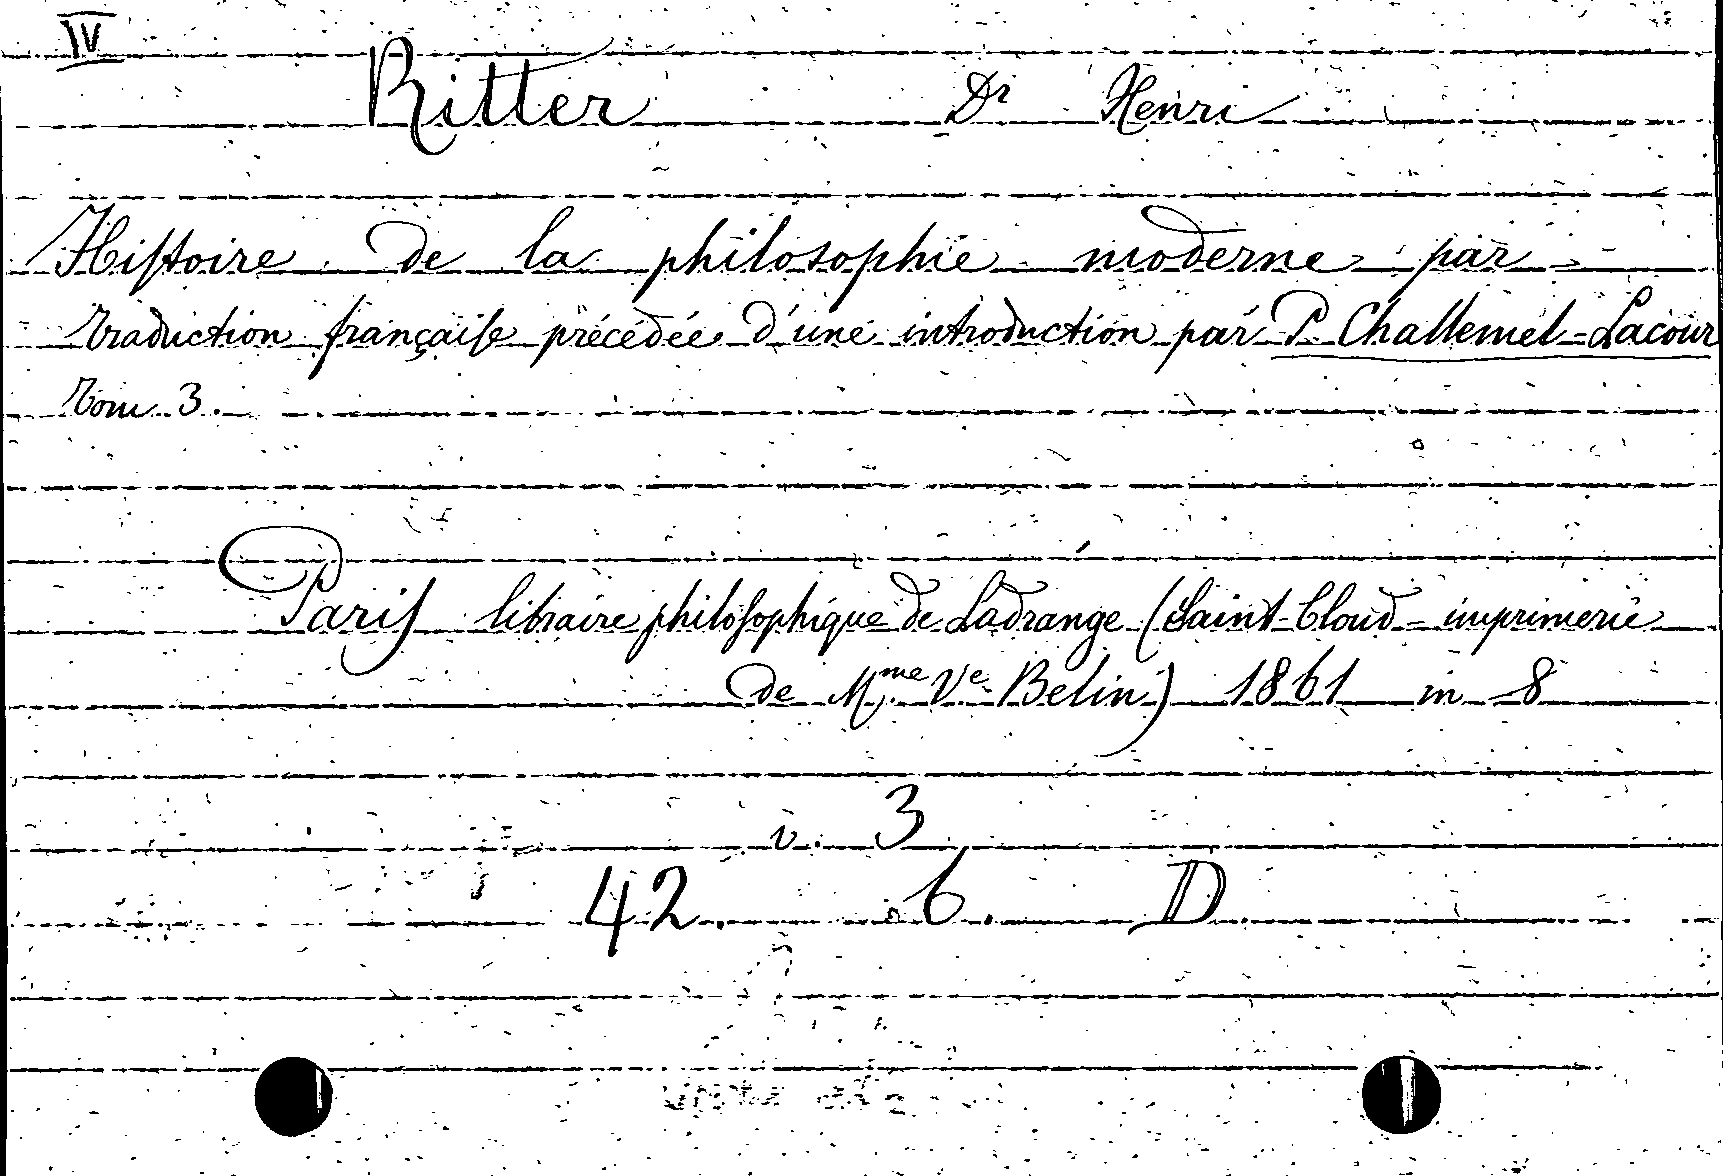 IV
Ritter Dr Henri
Histoire de la philosophie moderne par -
traduction française précédée d'une introduction par P. Challemel-Lacour
tom 3.
Paris libraire philosophique de Ladrange (Saint-Cloud - imprimerie
de Mme Ve Belin) 1861 in 8
v. 3
42. .6. D